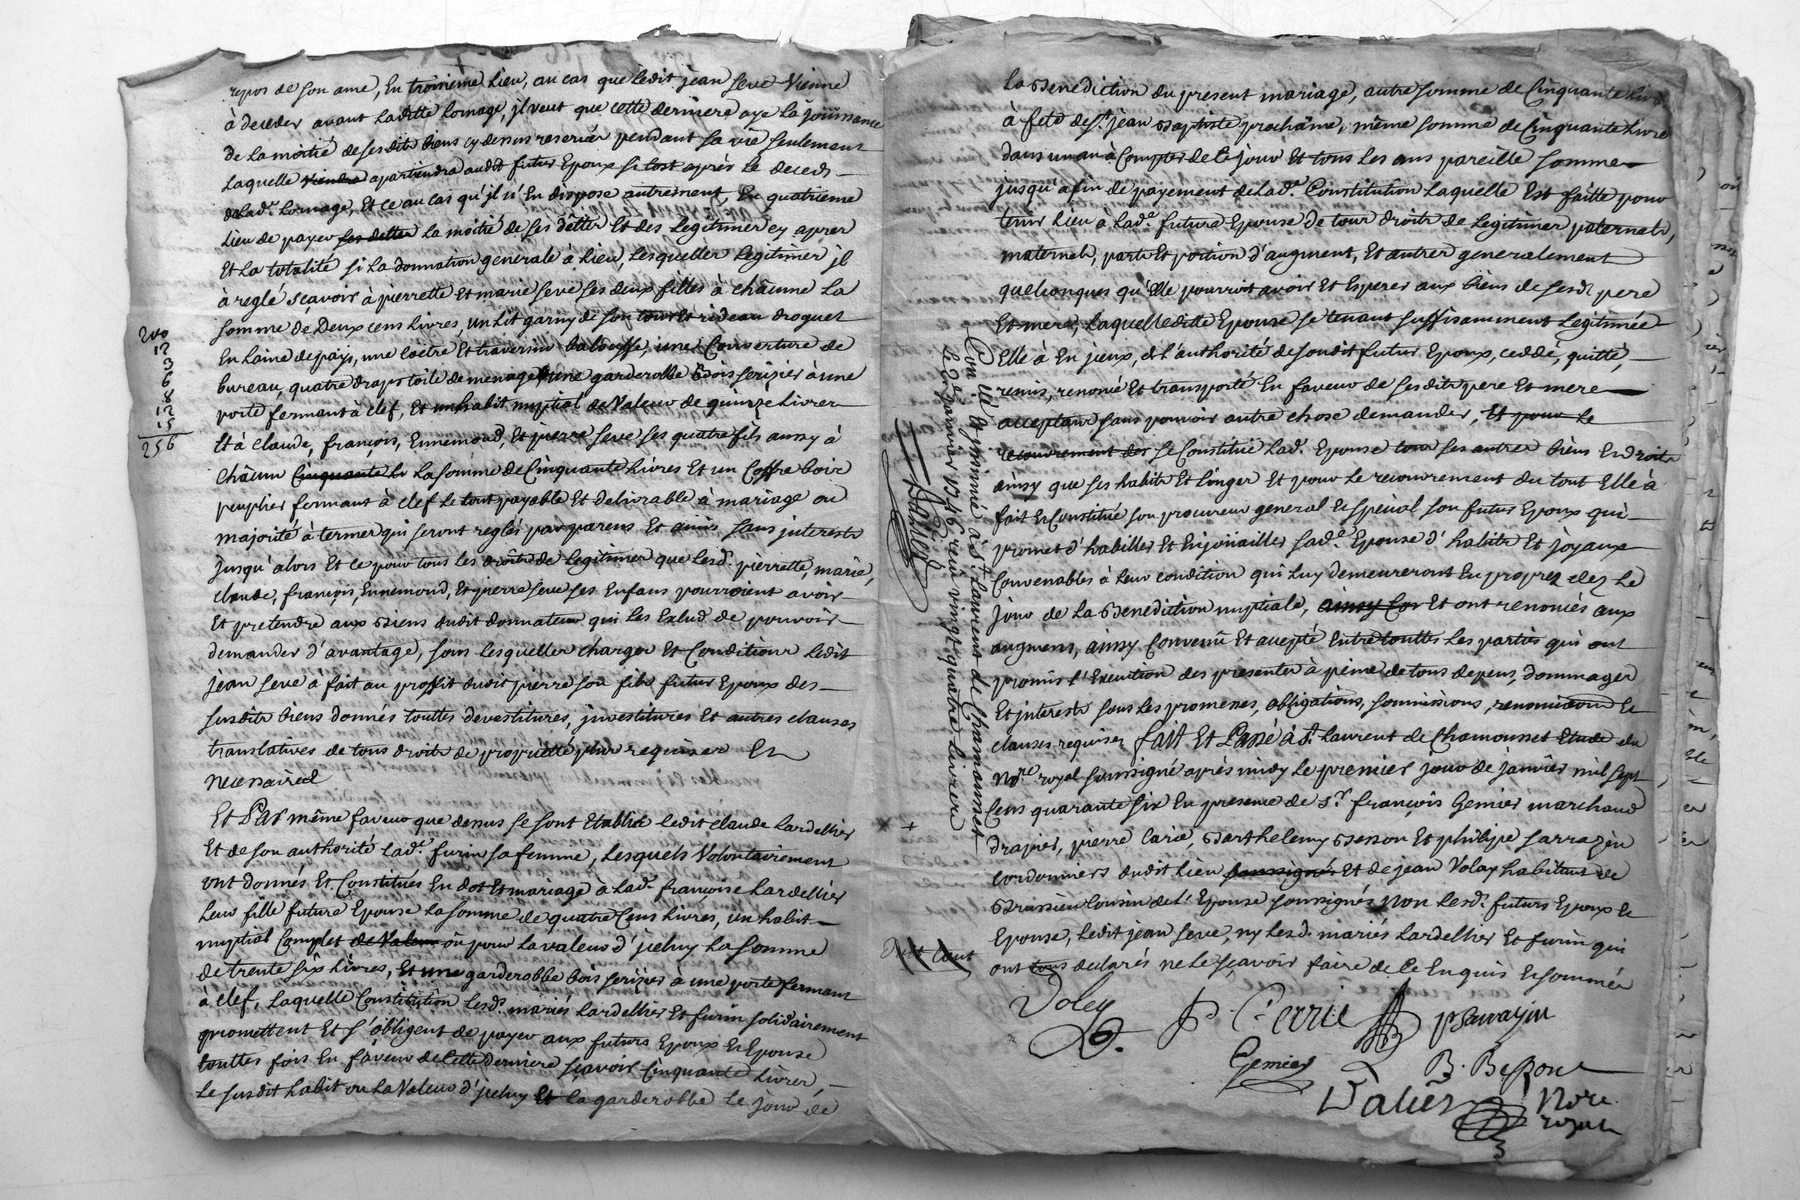 repos de son ame, En troisieme Lieu, au cas que ledit jean seve Vienne
à deceder avant Laditte Lomage, jl veut que cette derniere aye La joüissance
de La moitié de ses dits biens cy dessus reservés pendant sa vie seulement
Laquelle viendra apartiendra audit futur Epoux si tost après le deceds
de Lad.e Lomage, Et ce au cas qu'jl n'En dispose autrement, En quatrieme
Lieu de payer ses dettes La moitié de ses dêttes Et des Legitimes cy après
Et La totalité si La donnation generale à Lieu, Lesquelles Legitimes jl
à reglé sçavoir à pierrette Et marie seve ses deux filles à châcune La
somme de Deux cens Livres, un Lit garny de son tour Et rideau droguet
En Laine de païs, une coêtre Et traversin balouffe, une Couverture de
bureau, quatre draps toile de menage Et une garderobbe bois serizier à une
porte fermant à clef, Et un habit nuptial de Valeur de quinze Livres
Et à claude, françois, Ennemond, Et pierre seve ses quatre fils aussy à
Châcun Cinquante Li La somme de Cinquante Livres Et un Coffre bois
peuplier fermant à clef Le tout payable Et delivrable à mariage ou
majorité à termes qui seront reglés par parens Et amis sans jnterests
Jusqu'alors Et ce pour tous les droits de Legitimes que Lesd. pierrette, marie,
claude, françois, Ennemond, Et pierre seve ses Enfans pourroient avoir
Et pretendre aux Biens dudit donnateur qui les Exlud de pouvoir
demander d'avantage, sous lesquelles charges Et Conditions Ledit
jean seve à fait au proffit dudit pierre son fils futur Epoux des
susdits biens donnés touttes devestitures, jnvestitures Et autres clauses
translatives de tous droits de proprieté plus requises Et
necessaires
Et Par même faveur que dessus se sont Etablis ledit claude Lardellier
Et de son authorité Lad.e furin sa femme, Lesquels Volontairement
ont donnés Et Constitués En dot Et mariage à Lad.e françoise Lardellier
Leur fille future Epouse La somme de quatre Cens Livres, un habit
nuptial Complet de Valeur ou pour La valeur d'jceluy La somme
de trente six Livres, Et une garderobbe bois serizier à une porte fermant
à clef, Laquelle Constitution Lesd. mariés Lardellier Et furin solidairement
promettent Et s'obligent de payer aux futurs Epoux Et Epouse
touttes fois En faveur de Cette derniere sçavoir Cinquante Livres,
Le susdit habit ou La Valeur d'jceluy Et La garderobbe Le jour de
200
12
3
6
8
12
15
256
La Benediction du present mariage, autre somme de Cinquante Livres
à fete de S.t jean Baptiste prochaine, même somme de Cinquante Livres
dans un an à Compter de Ce jour Et tous Les ans pareille somme
jusqu'à fin de payement de Lad.e Constitution Laquelle Est faitte pour
tenir Lieu à Lad.e future Epouse de tous droits de Legitimes paternels,
maternels, part Et portion d'augment, Et autres generalement
quelconques qu'Elle pourroit avoir Et Esperer aux biens de sesd. pere
Et mere, Laquelleditte Epouse se tenant suffisamment Legitimée
Elle à En jceux, de L'authorité de sondit futur Epoux, ceddé, quitté,
remis, renoncé Et transporté En faveur de ses dits pere Et mere
acceptans sans pouvoir autre chose demander, Et pour Le
recouvrement des se Constitue Lad. Epouse tous ses autres biens Et droits
ainsy que ses habits Et Linges Et pour Le recouvrement du tout Elle à
fait Et Constitué son procureur general Et special son futur Epoux qui
promet d'habiller Et Enjoüailler sad.e Epouse d'habits Et joyaux
Convenables à Leur condition qui Luy demeureront En propres dez Le
Jour de La Benediction nuptiale, ainsy Con Et ont renoncés aux
augmens, ainsy Convenû Et accepté Entre touttes Les parties qui ont
promis L'Execution des presentes à peine de tous depens, dommages
Et jnterests sous Les promesses, obligations, soumissions, renonciations Et
clauses requises fait Et Passé à S.t Laurent de Chamousset Etude du
No.re royal soussigné après midy Le premier jour de janvier mil sept
Cens quarante six En presence de S.r françois Gemier marchand
drapier, pierre Carie, Barthelemy Besson Et philipe sarrazin
cordonniers dudit Lieu soussignés Et de jean Volay habitant de
Brussieu Cousin de L'Epouse soussignés non Lesd. futurs Epoux Et
Epouse, Ledit jean seve, ny Lesd. mariés Lardellier Et furin qui
ont tous declarés ne Le sçavoir faire de Ce Enquis Et sommés
Voley
P Cerrie
P Sarrazin
Gemier
B. Besson
Valier
No.re
royal
Con.lé Et jnsinué à S.t Laurent de Chamousset
Le 2.e janvier 1746 reçu vingt quatre Livres